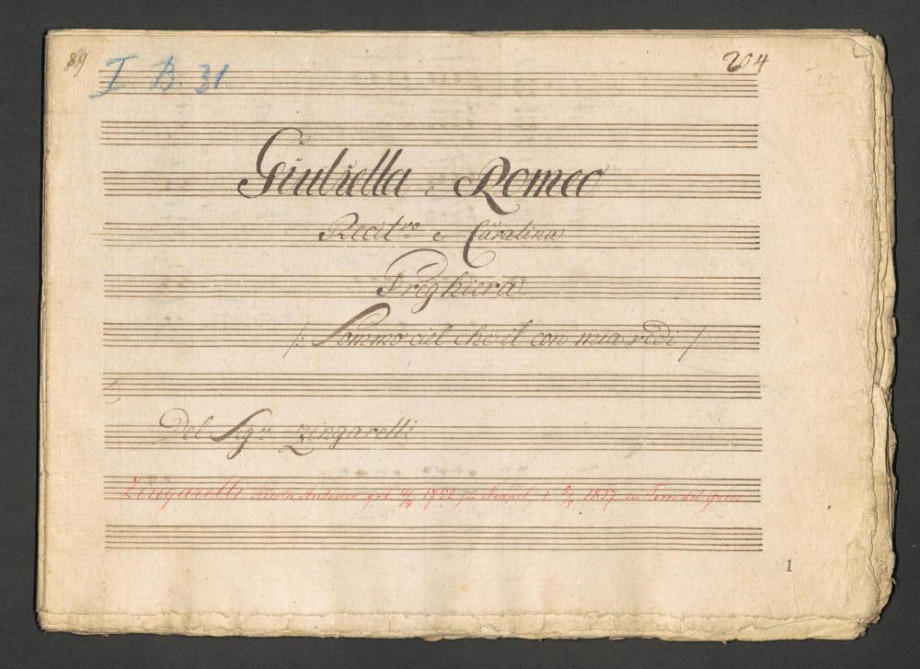 89
204
I B 31
Giulietta e Romeo
Recit.vo e Cavatina
Preghiera
/: Sommo ciel che il cor mia vedi /
Del Sigr. Zingarelli
Zingarelli Nicola Antonio geb. 4/4 1752 in Neapel, † 5/5 1837 in Torre del Greco
1